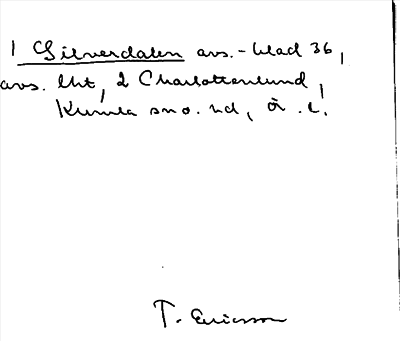 1 Silverdalen avs.-blad 36,
avs. lht, 2 Charlottenlund,
Kumla sn o. hd, Ö. L.
T. Ericsson